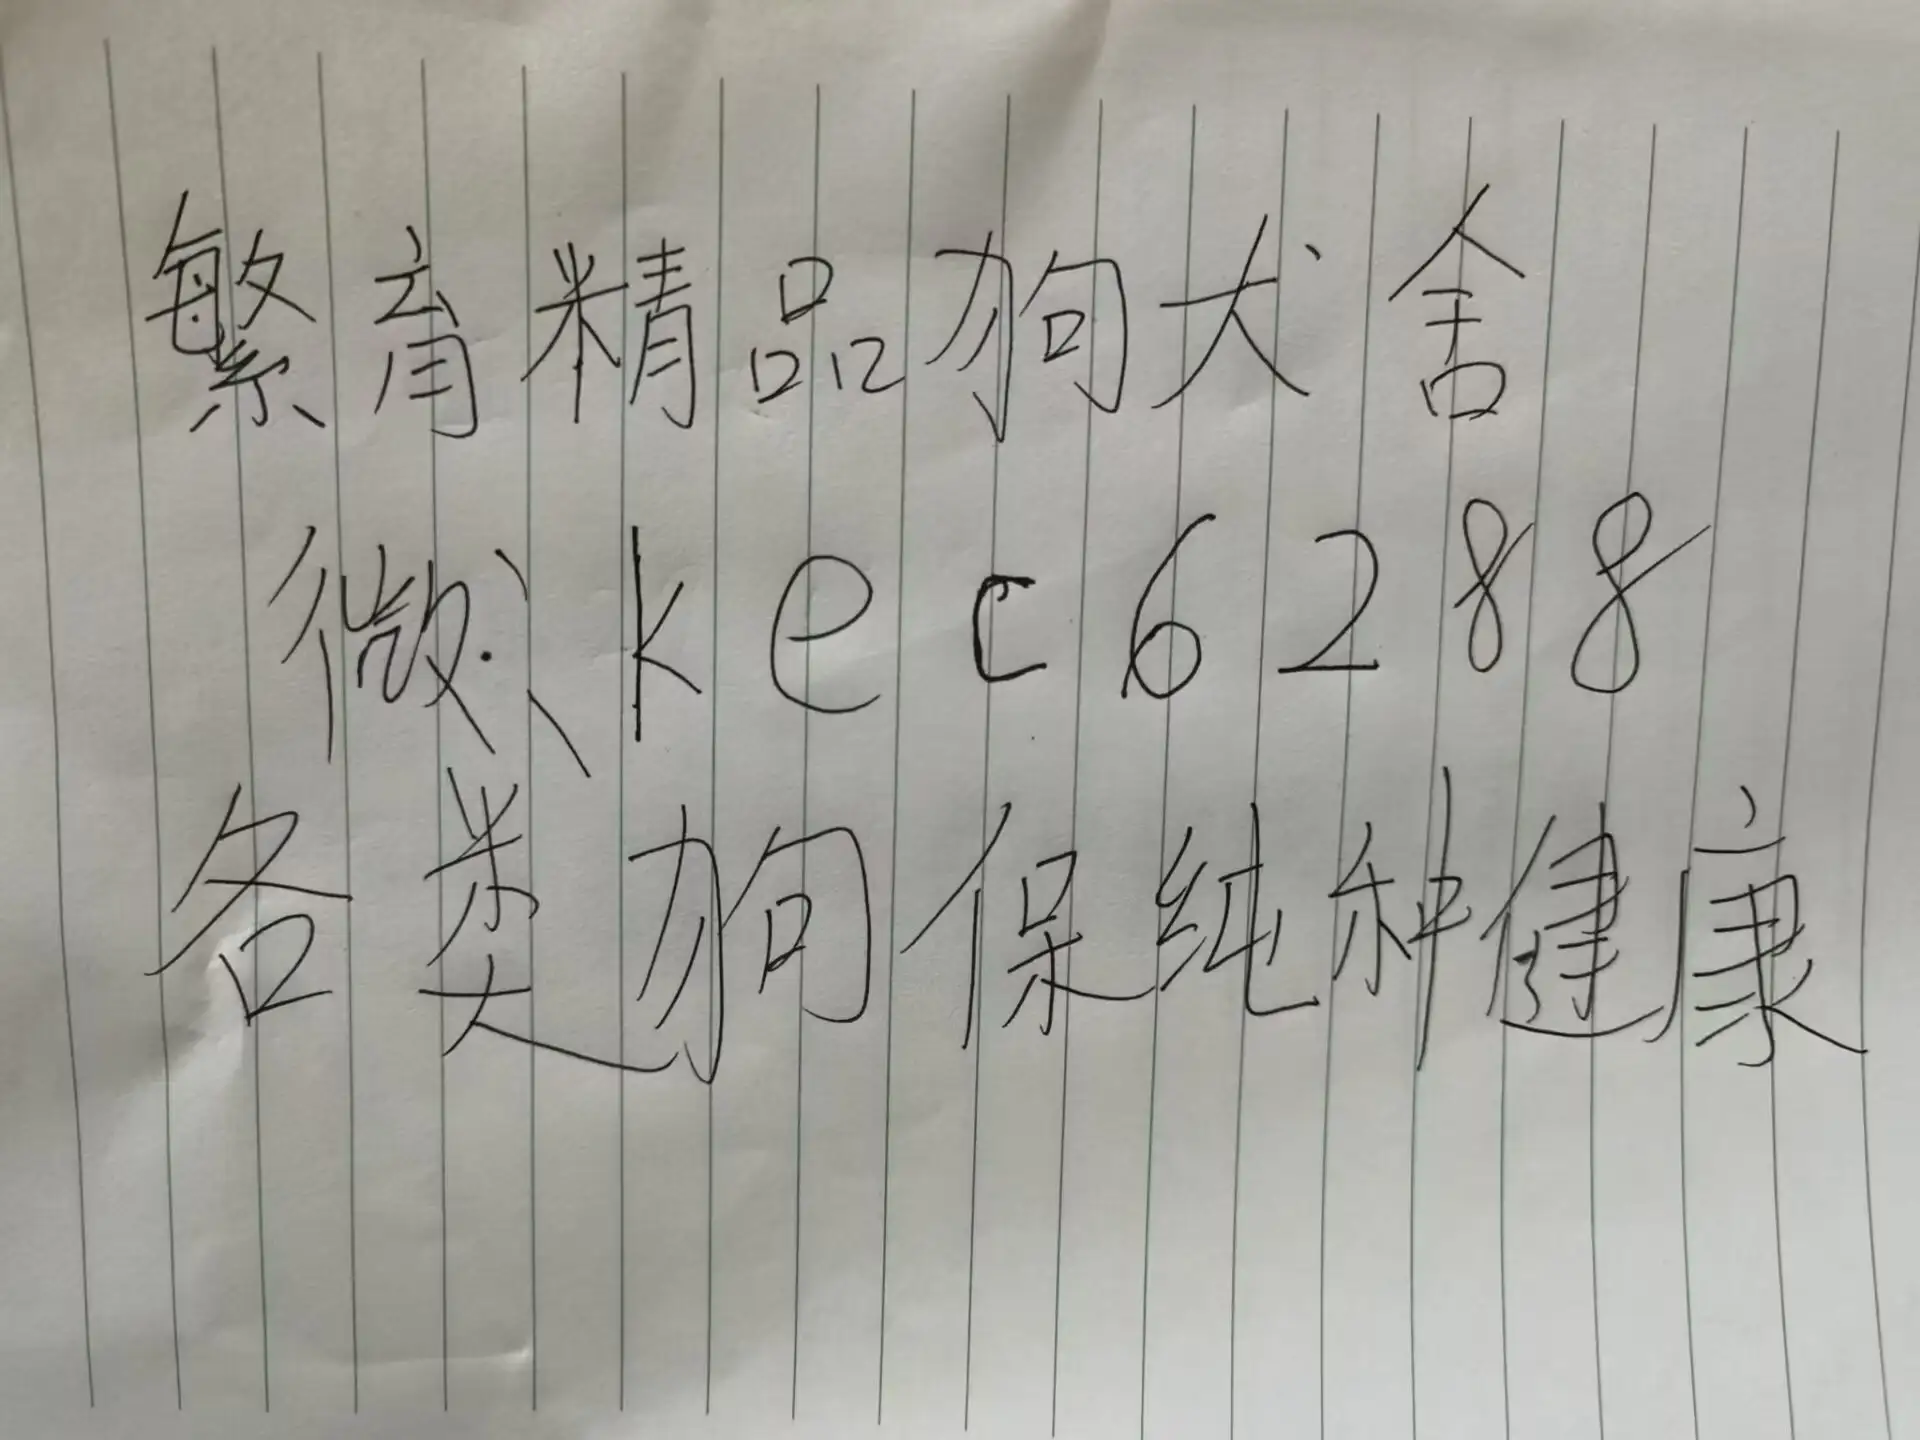 繁育精品狗犬舍
微:kec6288
各类狗保纯种健康